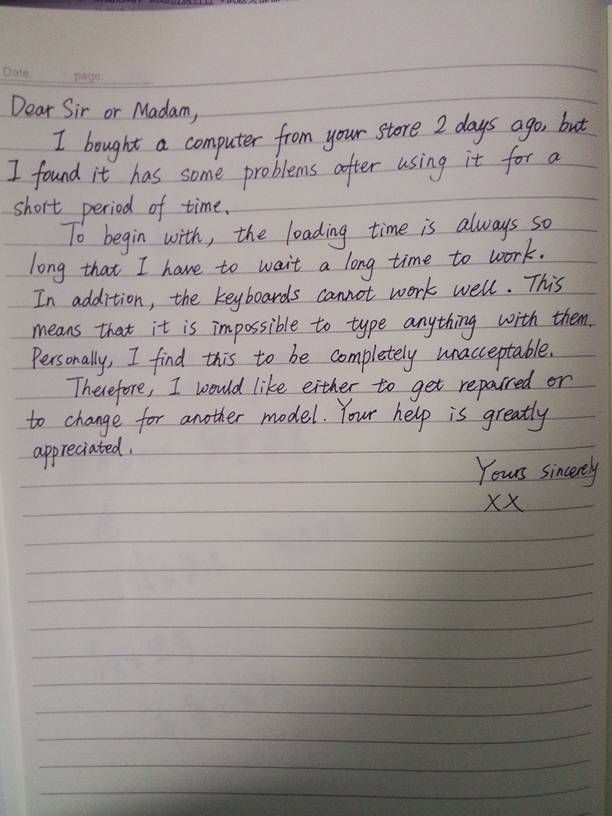 Date page
Dear Sir or Madam,
I bought a computer from your store 2 days ago, but
I found it has some problems after using it for a
short period of time.
To begin with, the loading time is always so
long that I have to wait a long time to work.
In addition, the keyboards cannot work well. This
means that it is impossible to type anything with them.
Personally, I find this to be completely unacceptable.
Therefore, I would like either to get repaired or
to change for another model. Your help is greatly
appreciated.
Yours sincerely
XX